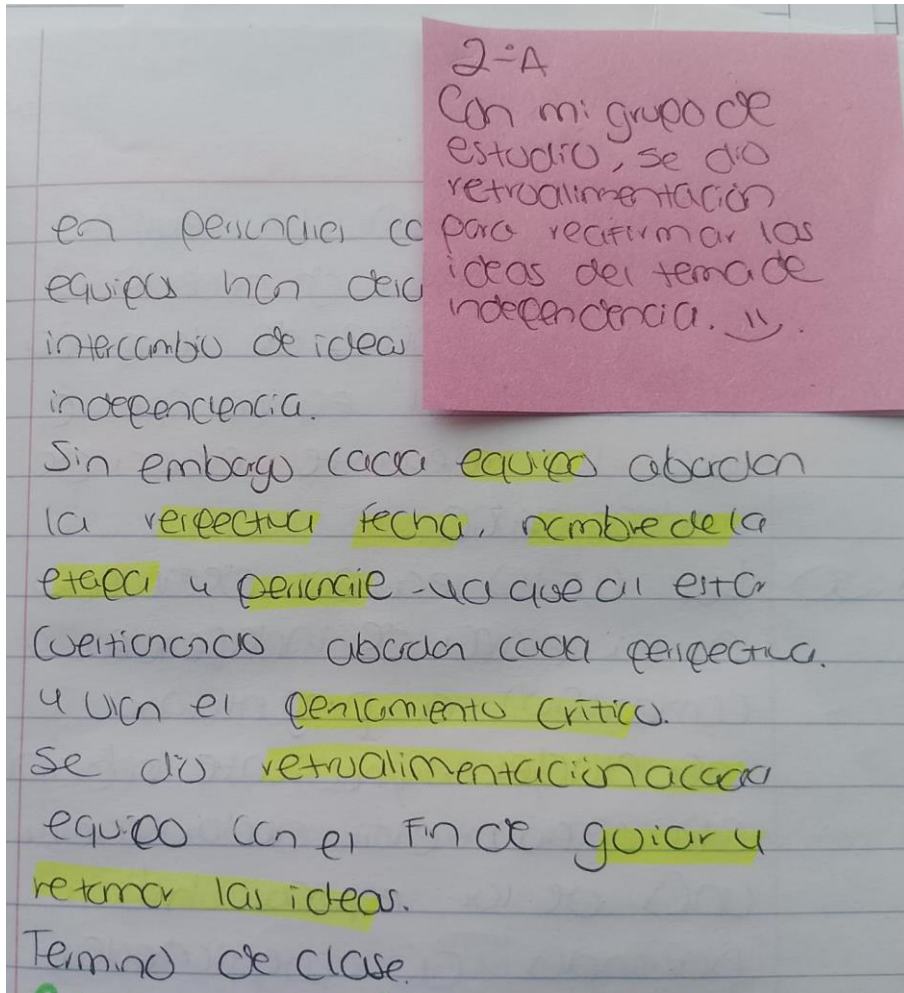 2-A
Con mi grupo de
estudio, se dio
retroalimentación
para reafirmar las
ideas del tema de
independencia.
en
equipos han
intercambio de ideas
independencia.
Sin embago cada equipo abordan
la respectiva fecha, nombre de la
etapa y personaje - ya que al estar
cuestionando abordan cada perspectiva.
y usan el pensamiento crítico.
Se dio retroalimentación a cada
equipo con el fin de guiar y
retomar las ideas.
Termino de clase.